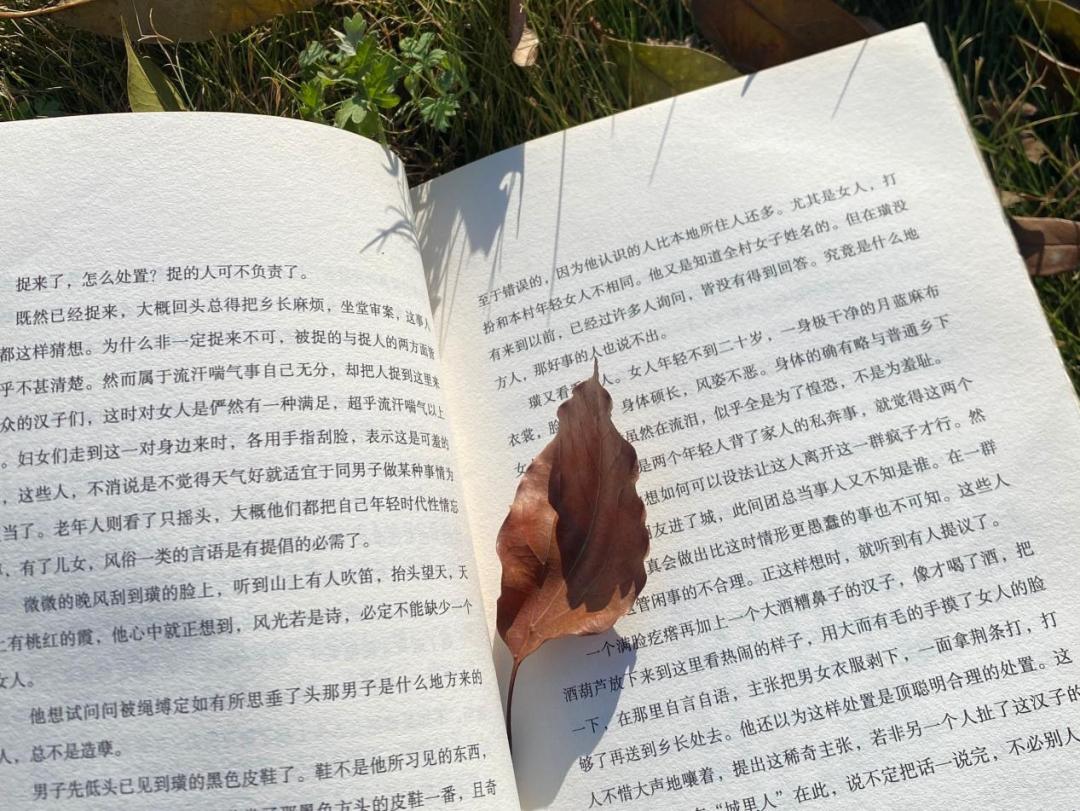 捉来了，怎么处置？捉的人可不负责了。
既然已经捉来，大概回头总得把乡长麻烦，坐堂审案，这事人
都这样猜想。为什么非一定捉来不可，被捉的与捉人的两方面皆
乎不甚清楚。然而属于流汗喘气事自己无分，却把人捉到这里来
众的汉子们，这时对女人是俨然有一种满足，超乎流汗喘气以上
。妇女们走到这一对身边来时，各用手指刮脸，表示这是可羞的
，这些人，不消说是不觉得天气好就适宜于同男子做某种事情为
当了。老年人则看了只摇头，大概他们都把自己年轻时代性情忘
，有了儿女，风俗一类的言语是有提倡的必需了。
微微的晚风刮到璜的脸上，听到山上有人吹笛，抬头望天，天
上有桃红的霞，他心中就正想到，风光若是诗，必定不能缺少一个
女人。
他想试问问被绳缚定如有所思垂了头那男子是什么地方来的
人，总不是造孽。
男子先低头已见到璜的黑色皮鞋了。鞋不是他所习见的东西，
那黑色方头的皮鞋一番，且奇
至于错误的，因为他认识的人比本地所住人还多。尤其是女人，打
扮和本村年轻女人不相同。他又是知道全村女子姓名的。但在璜没
有来到以前，已经过许多人询问，皆没有得到回答。究竟是什么地
方人，那好事的人也说不出。
璜又看 人。女人年轻不到二十岁，一身极干净的月蓝麻布
衣裳，脸 身体硕长，风姿不恶。身体的确有略与普通乡下
女 虽然在流泪，似乎全是为了惶恐，不是为羞耻。
是两个年轻人背了家人的私奔事，就觉得这两
想如何可以设法让这人离开这一群疯子才行。然
友进了城，此间团总当事人又不知是谁。在一群
真会做出比这时情形更愚蠢的事也不可知。这些人
管闲事的不合理。正这样想时，就听到有人提议了。
一个满脸疙瘩再加上一个大酒糟鼻子的汉子，像才喝了酒，把
酒葫芦放下来到这里看热闹的样子，用大而有毛的手摸了女人的脸
一下，在那里自言自语，主张把男女衣服剥下，一面拿荆条打，打
够了再送到乡长处去。他还以为这样处置是顶聪明合理的处置。这
人不惜大声地嚷着，提出这稀奇主张，若非另一个人扯了这汉子的
“城里人”在此，说不定把话一说完，不必别人